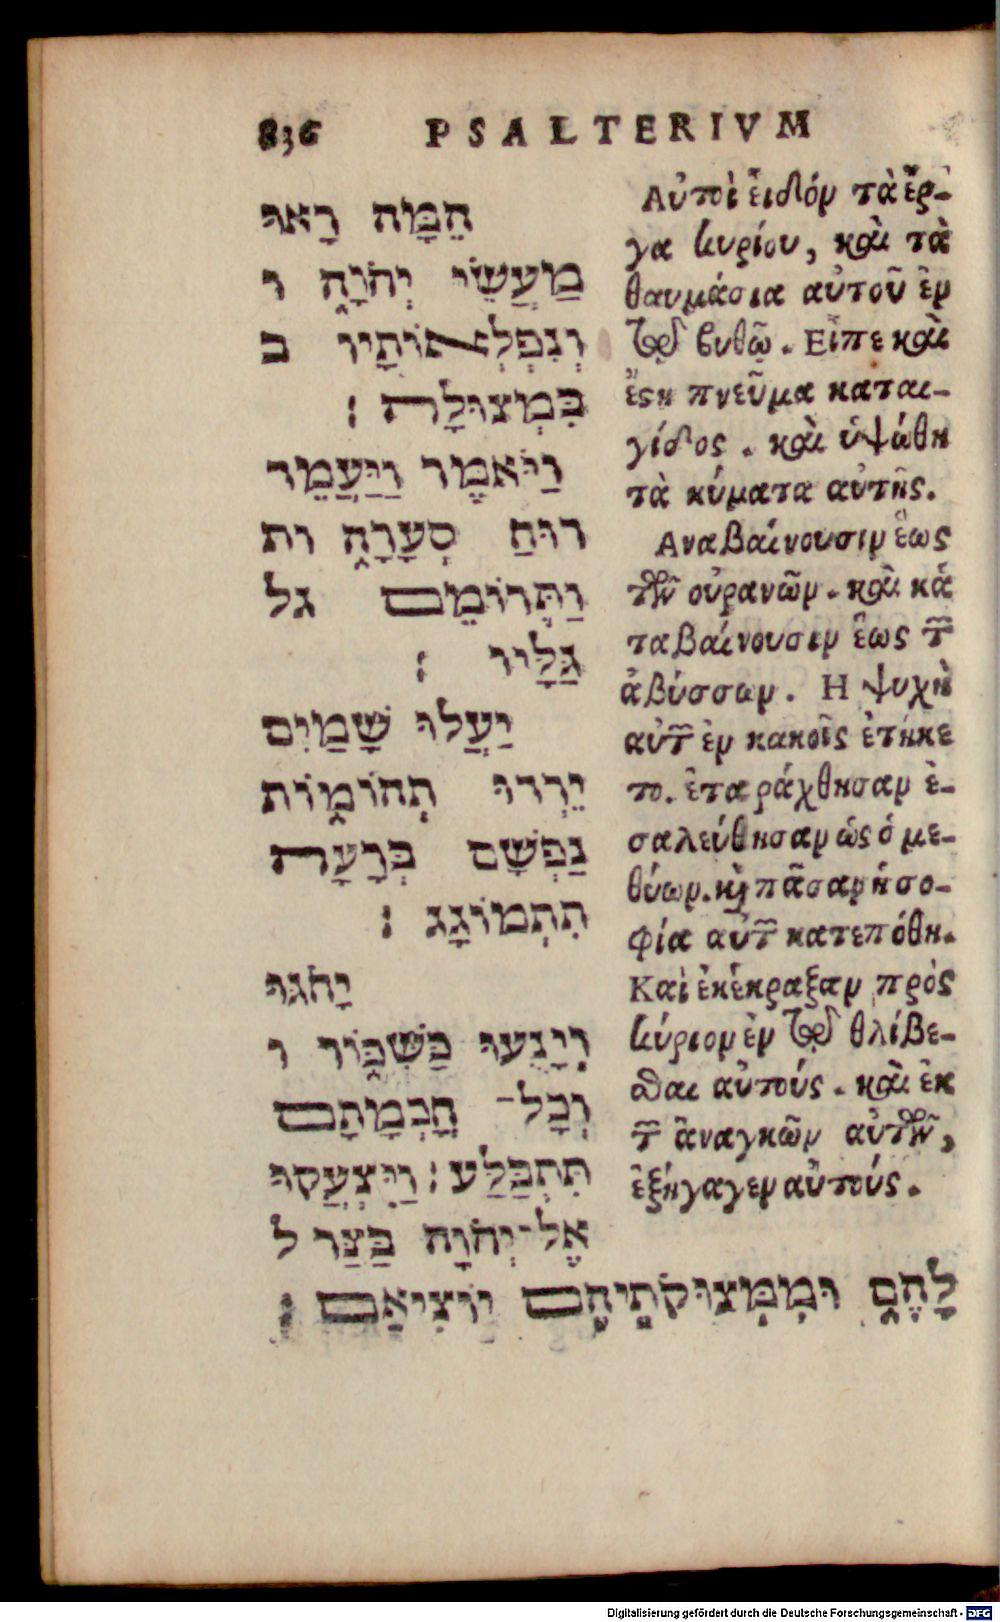 836 PSALTERIVM
הֵמָּה רָאוּ
מַעֲשֵׂי יְהוָה ו
וְנִפְלְאוֹתָיו ב
בִּמְצוּלָה :
וַיֹּאמֶר וַיַּעֲמֵד
רוּחַ סְעָרָה ות
וַתְּרוֹמֵם גל
גַּלָּיו :
יַעֲלוּ שָׁמַיִם
יֵרְדוּ תְהוֹמוֹת
נַפְשָׁם בְּרָעָה
תִתְמוֹגָג :
יָחֹגּוּ
וְיָנֻעוּ כַּשִּׁכּוֹר ו
וְכָל־ חָכְמָתָם
תִּתְבַּלַּע : וַיִּצְעֲקוּ
אֶל־יְהוָה בַּצַּר ל
לָהֶם וּמִמְּצוּקֹתֵיהֶם יוֹצִיאֵם :
Αὐτοὶ εἶδόν τὰ ἔρ-
γα κυρίου, καὶ τὰ
θαυμάσια αὐτοῦ ἐν
τῷ βυθῷ. Εἶπε καὶ
ἔςη πνεῦμα καται-
γίδος. καὶ ὑψώθη
τὰ κύματα αὐτῆς.
Αναβαίνουσιν ἕως
τῶν οὐρανῶν. καὶ κά
ταβαίνουσιν ἕως τῶν
ἀβύσσων. Η ψυχὴ
αὐτῶν ἐν κακοῖς ἐτήκε
το. ἐταράχθησαν ἐ-
σαλεύθησαν ὡς ὁ με-
θύων. καὶ πᾶσαν ἡ σο-
φία αὐτῶν κατεπόθη.
Καὶ ἐκέκραξαν πρὸς
κύριον ἐν τῷ θλίβε-
σθαι αὐτούς. καὶ ἐκ
τῶν ἀναγκῶν αὐτῶν,
ἐξήγαγεν αὐτούς.
Digitalisierung gefördert durch die Deutsche Forschungsgemeinschaft - DFG